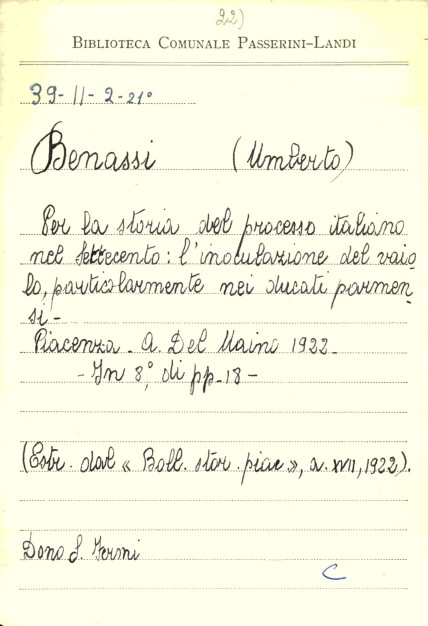 22)
BIBLIOTECA COMUNALE PASSERINI-LANDI
39-11-2-21°
Benassi (Umberto)
Per la storia del processo italiano
nel Settecento: l'inoculazione del vaio=
lo, particolarmente nei ducati parmen=
si-
Piacenza - A. Del Maino 1922-
- In 8°, di pp. 18-
(Estr. dal « Boll. stor. piac », a. XVII, 1922).
Dono S. Fermi
C